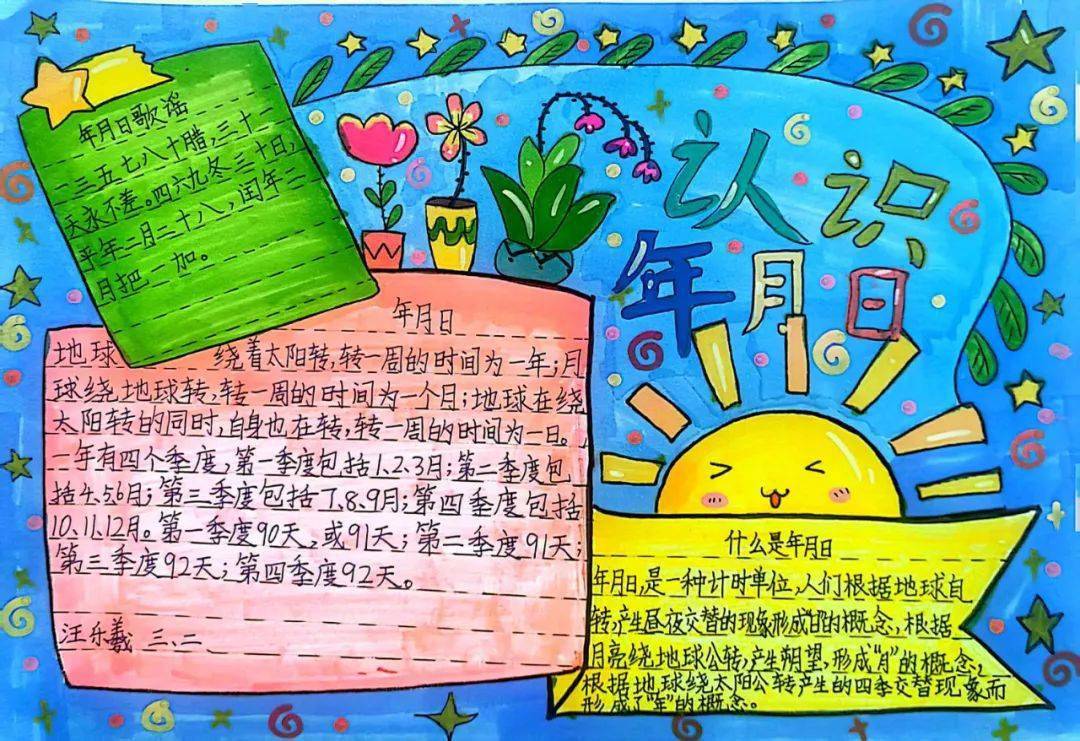 认识
年月日
年月日歌谣
一三五七八十腊,三十一
天永不差。四六九冬三十日,
平年二月二十八,闰年二
月把一加。
年月日
地球 绕着太阳转,转一周的时间为一年;月
球绕地球转,转一周的时间为一个月;地球在绕
太阳转的同时,自身也在转,转一周的时间为一日。
一年有四个季度,第一季度包括1.2.3月;第二季度包
括4.5.6月;第三季度包括7.8.9月;第四季度包括
10.11.12月。第一季度90天,或91天;第二季度91天;
第三季度92天;第四季度92天。
汪乐羲 三、二
什么是年月日
年月日,是一种计时单位,人们根据地球自
转,产生昼夜交替的现象形成"日"的概念,根据
月亮绕地球公转,产生朔望,形成"月"的概念,
根据地球绕太阳公转产生的四季交替现象而
形成了"年"的概念。